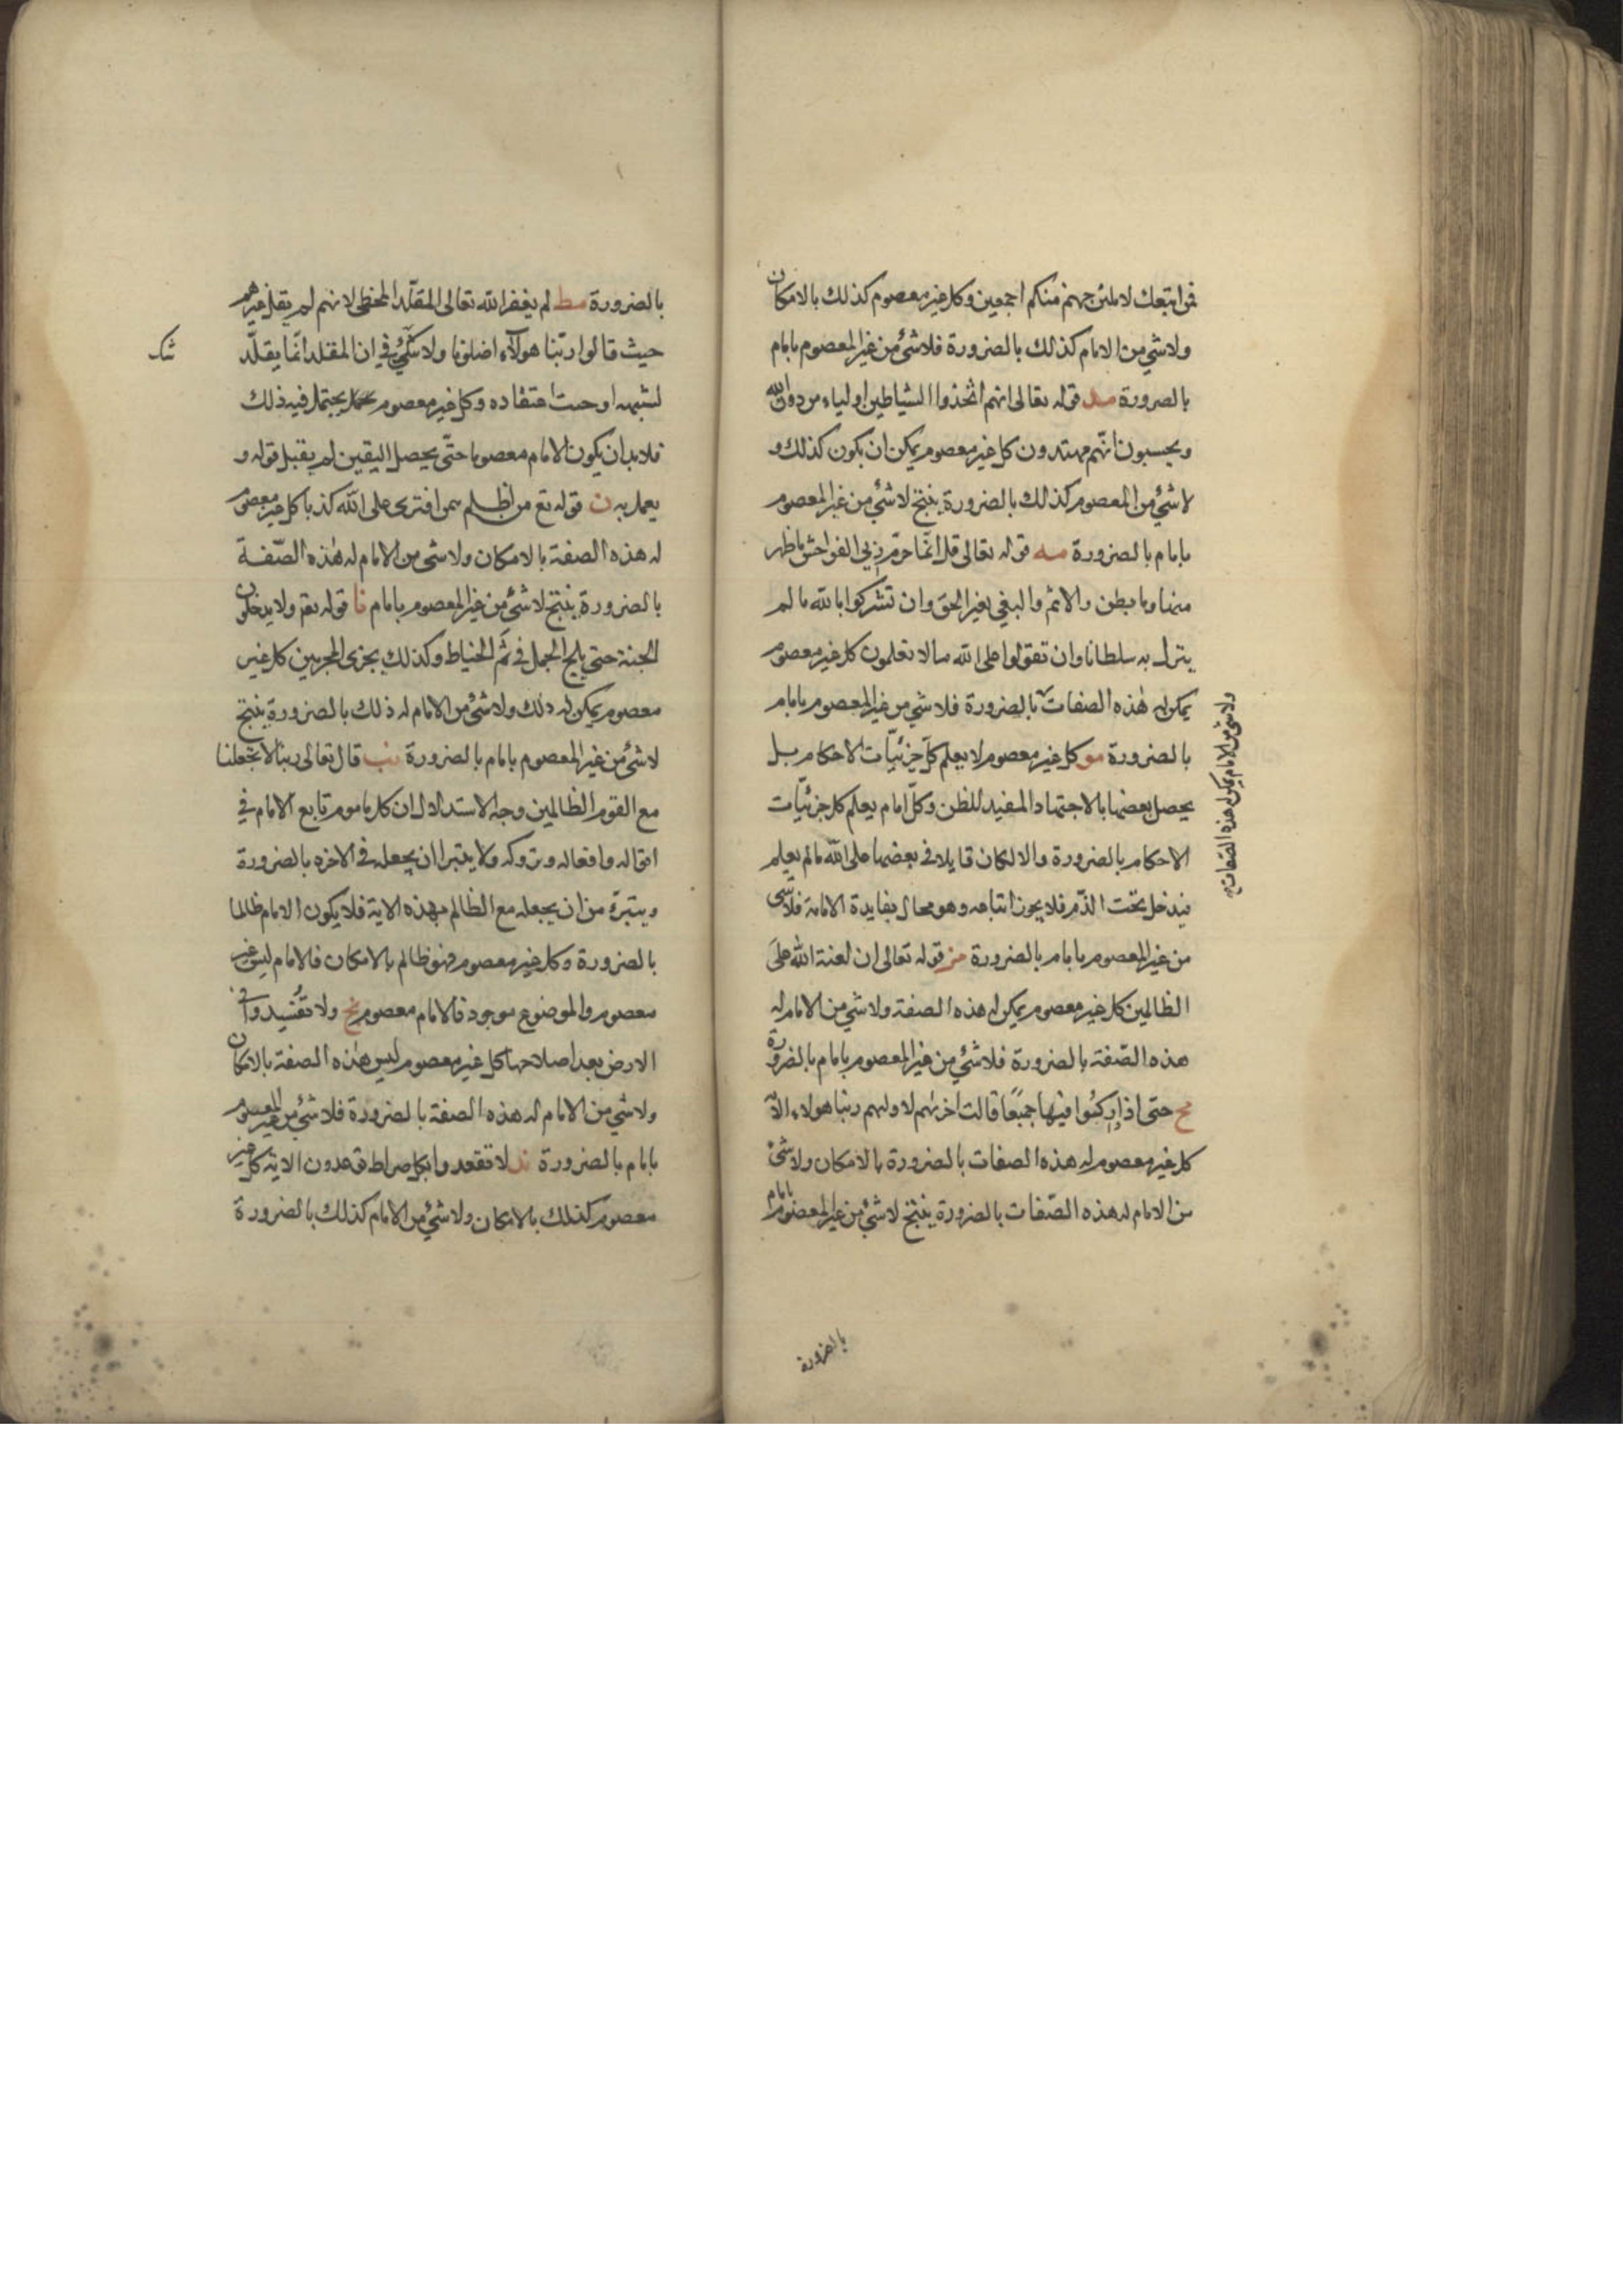 فمن اتبعك لاملئن جهنم منكم اجمعين وكل غير معصوم كذلك بالامكان
ولا شئ من الامام كذلك بالضرورة فلا شئ من غير المعصوم بامام
بالضرورة مد قوله تعالى انهم اتخذوا الشياطين اولياء من دون الله
ويحسبون انّهم مهتدون كل غير معصوم يمكن ان يكون كذلك و
لا شئ من المعصوم كذلك بالضرورة ينتج لا شئ من غير المعصوم
بامام بالضرورة مه قوله تعالى قل انّما حرّم ربى الفواحش ما ظهر
منها وما بطن والاثم والبغى بغير الحق وان تشركوا بالله ما لم
ينزل به سلطانا وان تقولوا على الله ما لا تعلمون كل غير معصوم
يمكن له هذه الصفات بالضرورة فلا شئ من غير المعصوم بامام
ولا شئ من الامام يمكن له هذه الصفات
بالضرورة مو كل غير معصوم لا يعلم كل جزئيّات الاحكام بل
يحصل بعضها بالاجتهاد المفيد للظن وكلّ امام يعلم كل جزئيّات
الاحكام بالضرورة والا لكان قايلا فى بعضها على الله ما لم يعلم
فيدخل تحت الذّم فلا يجوز اتباعه وهو محال بفايدة الامامة فلا شئ
من غير المعصوم بامام بالضرورة مز قوله تعالى ان لعنة الله على
الظالمين كل غير معصوم يمكن له هذه الصفة ولا شئ من الامام له
هذه الصّفة بالضرورة فلا شئ من غير المعصوم بامام بالضرورة
مح حتى اذا اداركوا فيها جميعًا قالت اخريهم لاوليهم ربنا هولاء الآ
كل غير معصوم له هذه الصفات بالضرورة بالامكان ولا شئ
من الامام له هذه الصّفات بالضرورة ينتج لا شئ من غير المعصوم بامام
بالضرورة
بالضرورة مط لم يغفر الله تعالى للمقلّد المخطى لانهم لم يقلد غيرهم
حيث قالوا ربّنا هولآء اضلونا ولا شك فى ان المقلد انّما يقلّد
شك
لشبهه او حسن اعتقاده وكل غير معصوم يحتمل فيه ذلك
فلابد ان يكون الامام معصوما حتّى يحصل اليقين لم يقبل قوله و
يعمل به ن قوله تع من اظلم ممن افترى على الله كذبا كل غير معصوم
له هذه الصفة بالامكان ولا شئ من الامام له هذه الصّفة
بالضرورة ينتج لا شئ من غير المعصوم بامام نا قوله تع ولا يدخلون
الجنة حتى يلج الجمل فى سم الخياط وكذلك يجزى المجرمين كل غير
معصوم يمكن له ذلك ولا شئ من الامام له ذلك بالضرورة ينتج
لا شئ من غير المعصوم بامام بالضرورة نب قال تعالى ربنا لا تجعلنا
مع القوم الظالمين وجه الاستدلال ان كل ماموم تابع الامام فى
اقواله وافعاله وتروكه ولا يتبرا ان يجعله فى الاخره بالضرورة
ويتبرء من ان يجعله مع الظالم بهذه الاية فلا يكون الامام ظالما
بالضرورة وكل غير معصوم فهو ظالم بالامكان فالامام ليس غير
معصوم والموضوع موجود فالامام معصوم نج ولا تفسدوا فى
الارض بعد اصلاحها كل غير معصوم ليس هذه الصفة بالامكان
ولا شئ من الامام له هذه الصفة بالضرورة فلا شئ من غير المعصوم
بامام بالضرورة ند لا تقعدوا بكل صراط توعدون الاية كل غير
معصوم كذلك بالامكان ولا شئ من الامام كذلك بالضرورة